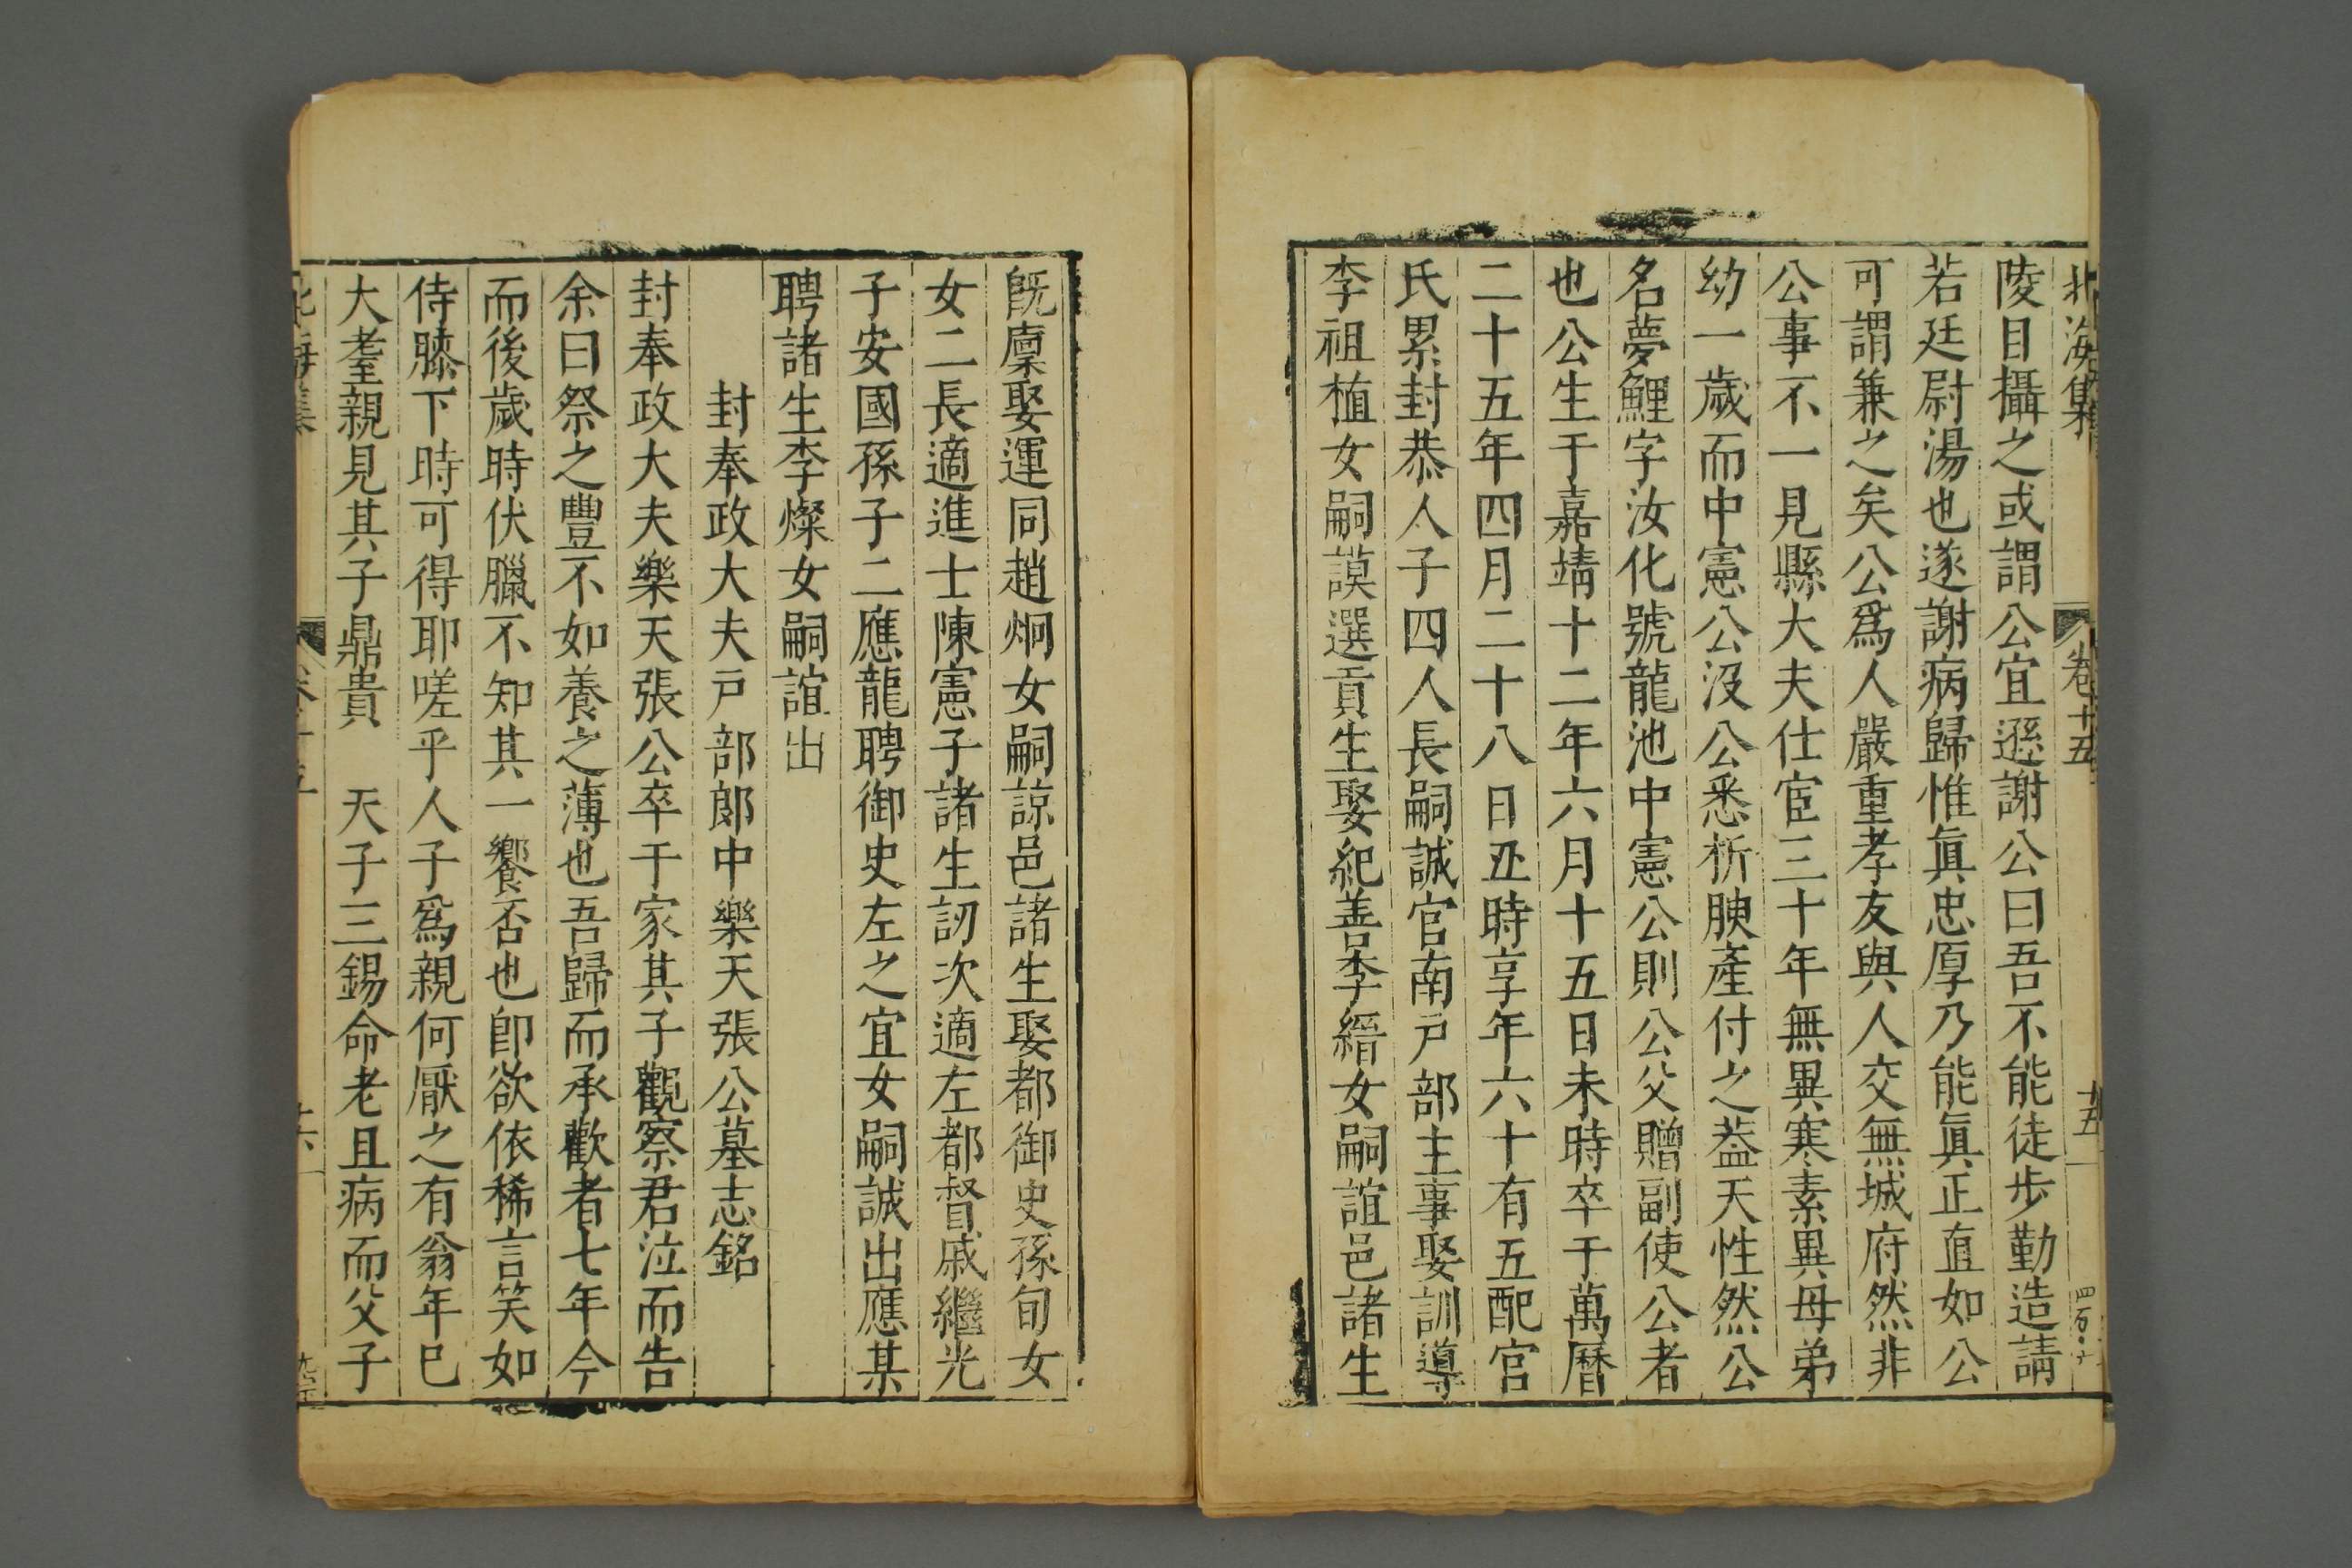 北海集 卷十五 十五
陵目攝之或謂公宜遜謝公曰吾不能徒步勤造請
若廷尉湯也遂謝病歸惟眞忠厚乃能眞正直如公
可謂兼之矣公爲人嚴重孝友與人交無城府然非
公事不一見縣大夫仕宦三十年無異寒素異母弟
幼一歲而中憲公沒公悉析腴產付之葢天性然公
名夢鯉字汝化號龍池中憲公則公父贈副使公者
也公生于嘉靖十二年六月十五日未時卒于萬曆
二十五年四月二十八日丑時享年六十有五配宫
氏累封恭人子四人長嗣誠官南戸部主事娶訓導
李祖植女嗣謨選貢生娶紀善李縉女嗣誼邑諸生
旣廩娶運同趙炯女嗣諒邑諸生娶都御史孫旬女
女二長適進士陳憲子諸生訒次適左都督戚繼光
子安國孫子二應龍聘御史左之宜女嗣誠出應某
聘諸生李燦女嗣誼出
封奉政大夫戸部郎中樂天張公墓志銘
封奉政大夫樂天張公卒于家其子觀察君泣而告
余曰祭之豐不如養之薄也吾歸而承歡者七年今
而後歲時伏臘不知其一饗否也卽欲依稀言笑如
侍膝下時可得耶嗟乎人子爲親何厭之有翁年巳
大耋親見其子鼎貴 天子三錫命老且病而父子
北海集